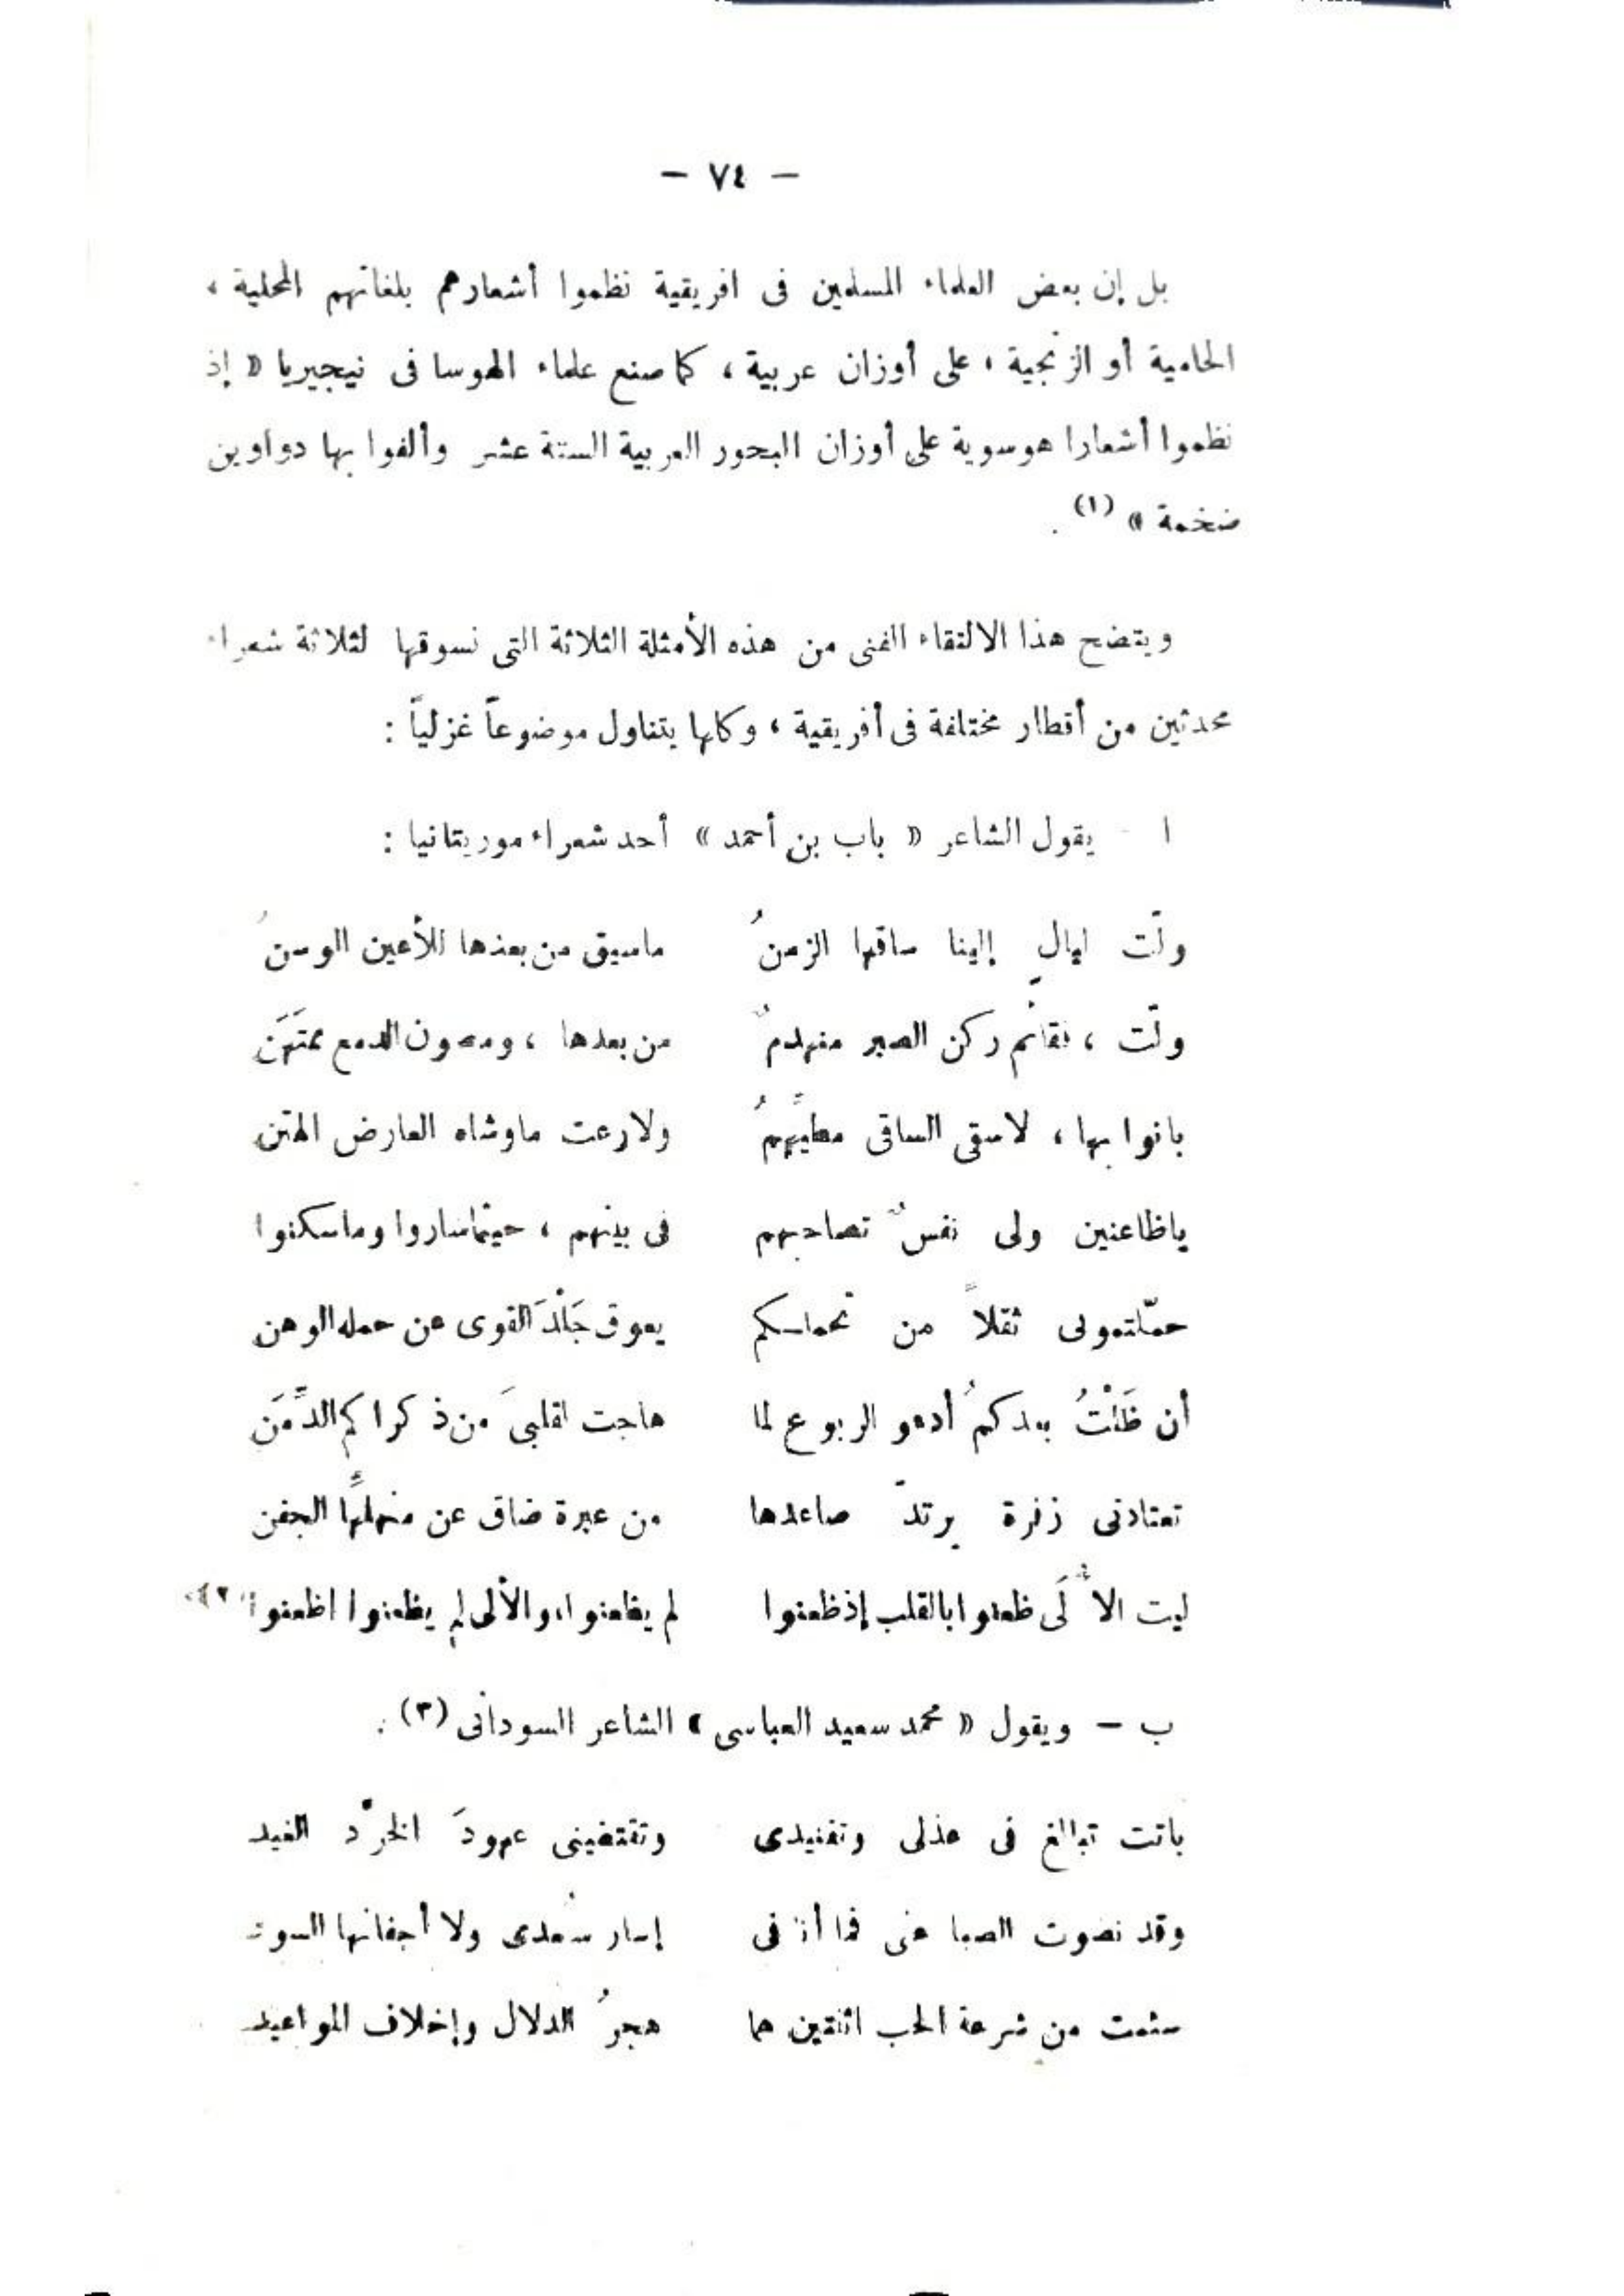 — ٧٤ —
بل إن بعض العلماء المسلمين فى افريقية نظموا أشعارهم بلغاتهم المحلية ،
الحامية أو الزنجية ، على أوزان عربية ، كما صنع علماء الهوسا فى نيجيريا « إذ
نظموا أشعارا هوسوية على أوزان البحور العربية الستة عشر وألفوا بها دواوين
ضخمة » (١) .
ويتضح هذا الالتقاء الفنى من هذه الأمثلة الثلاثة التى نسوقها لثلاثة شعراء
محدثين من أقطار مختلفة فى أفريقية ، وكلها يتناول موضوعاً غزلياً :
ا - يقول الشاعر « باب بن أحمد » أحد شعراء موريتانيا :
ولّت ليالٍ إلينا ساقها الزمنُ ماسيق من بعدها للأعين الوسنُ
ولّت ، فقائم ركن الصبر منهدمٌ من بعدها ، ومصون الدمع ممتَهَن
بانوا بها ، لاسقى الساقى مطيَّهمُ ولارعت ماوشاه العارض الهتن
ياظاعنين ولى نفسٌ تصاحبهم فى بينهم ، حيثماساروا وماسكنوا
حمّلتمونى ثقلاً من تحملكم يعوق جَلْدَ القوى عن حمله الوهن
أن ظَلْتُ بعدكمُ أدعو الربوع لما هاجت لقلبىَ من ذكراكم الدِّمَن
تعتادنى زفرة يرتدّ صاعدها من عبرة ضاق عن منهلِّها الجفن
ليت الأُلَى ظعنوا بالقلب إذ ظعنوا لم يظعنوا ، والألى لم يظعنوا ظعنوا (٢)
ب — ويقول « محمد سعيد العباسى » الشاعر السودانى (٣) :
باتت تبالغ فى عذلى وتفنيدى وتقتضينى عهودَ الخرّد الغيد
وقد نضوت الصبا عنى فما أنا فى إسار سُعدى ولا أجفانها السود
سئمت من شرعة الحب اثنتين هما هجرُ الدلال وإخلاف المواعيد